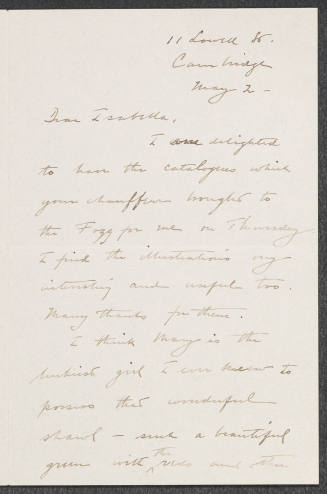 11 Lowell St.
Cambridge
May 2 -
Dear Isabella,
I am delighted
to have the catalogues which
your chauffeur brought to
the Fogg for me on Thursday
I find the illustrations very
interesting and useful too.
Many thanks for them.
I think Mary is the
luckiest girl I ever knew to
possess that wonderful
shawl - such a beautiful
green with the reds and other